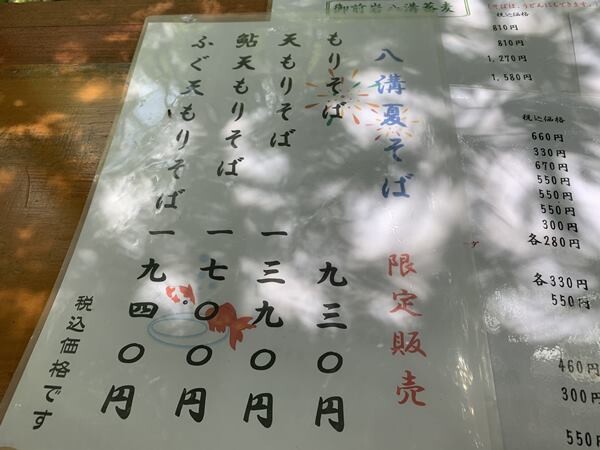 八溝夏そば 限定販売
もりそば 九三〇円
天もりそば 一三九〇円
鮎天もりそば 一七〇〇円
ふぐ天もりそば 一九四〇円
税込価格です
御前岩八溝蕎麦
(そばは、うどんにもできます。)
税込価格
810円
810円
1,270円
1,580円
税込価格
660円
330円
670円
550円
550円
550円
300円
各280円
各330円
550円
460円
300円
550円